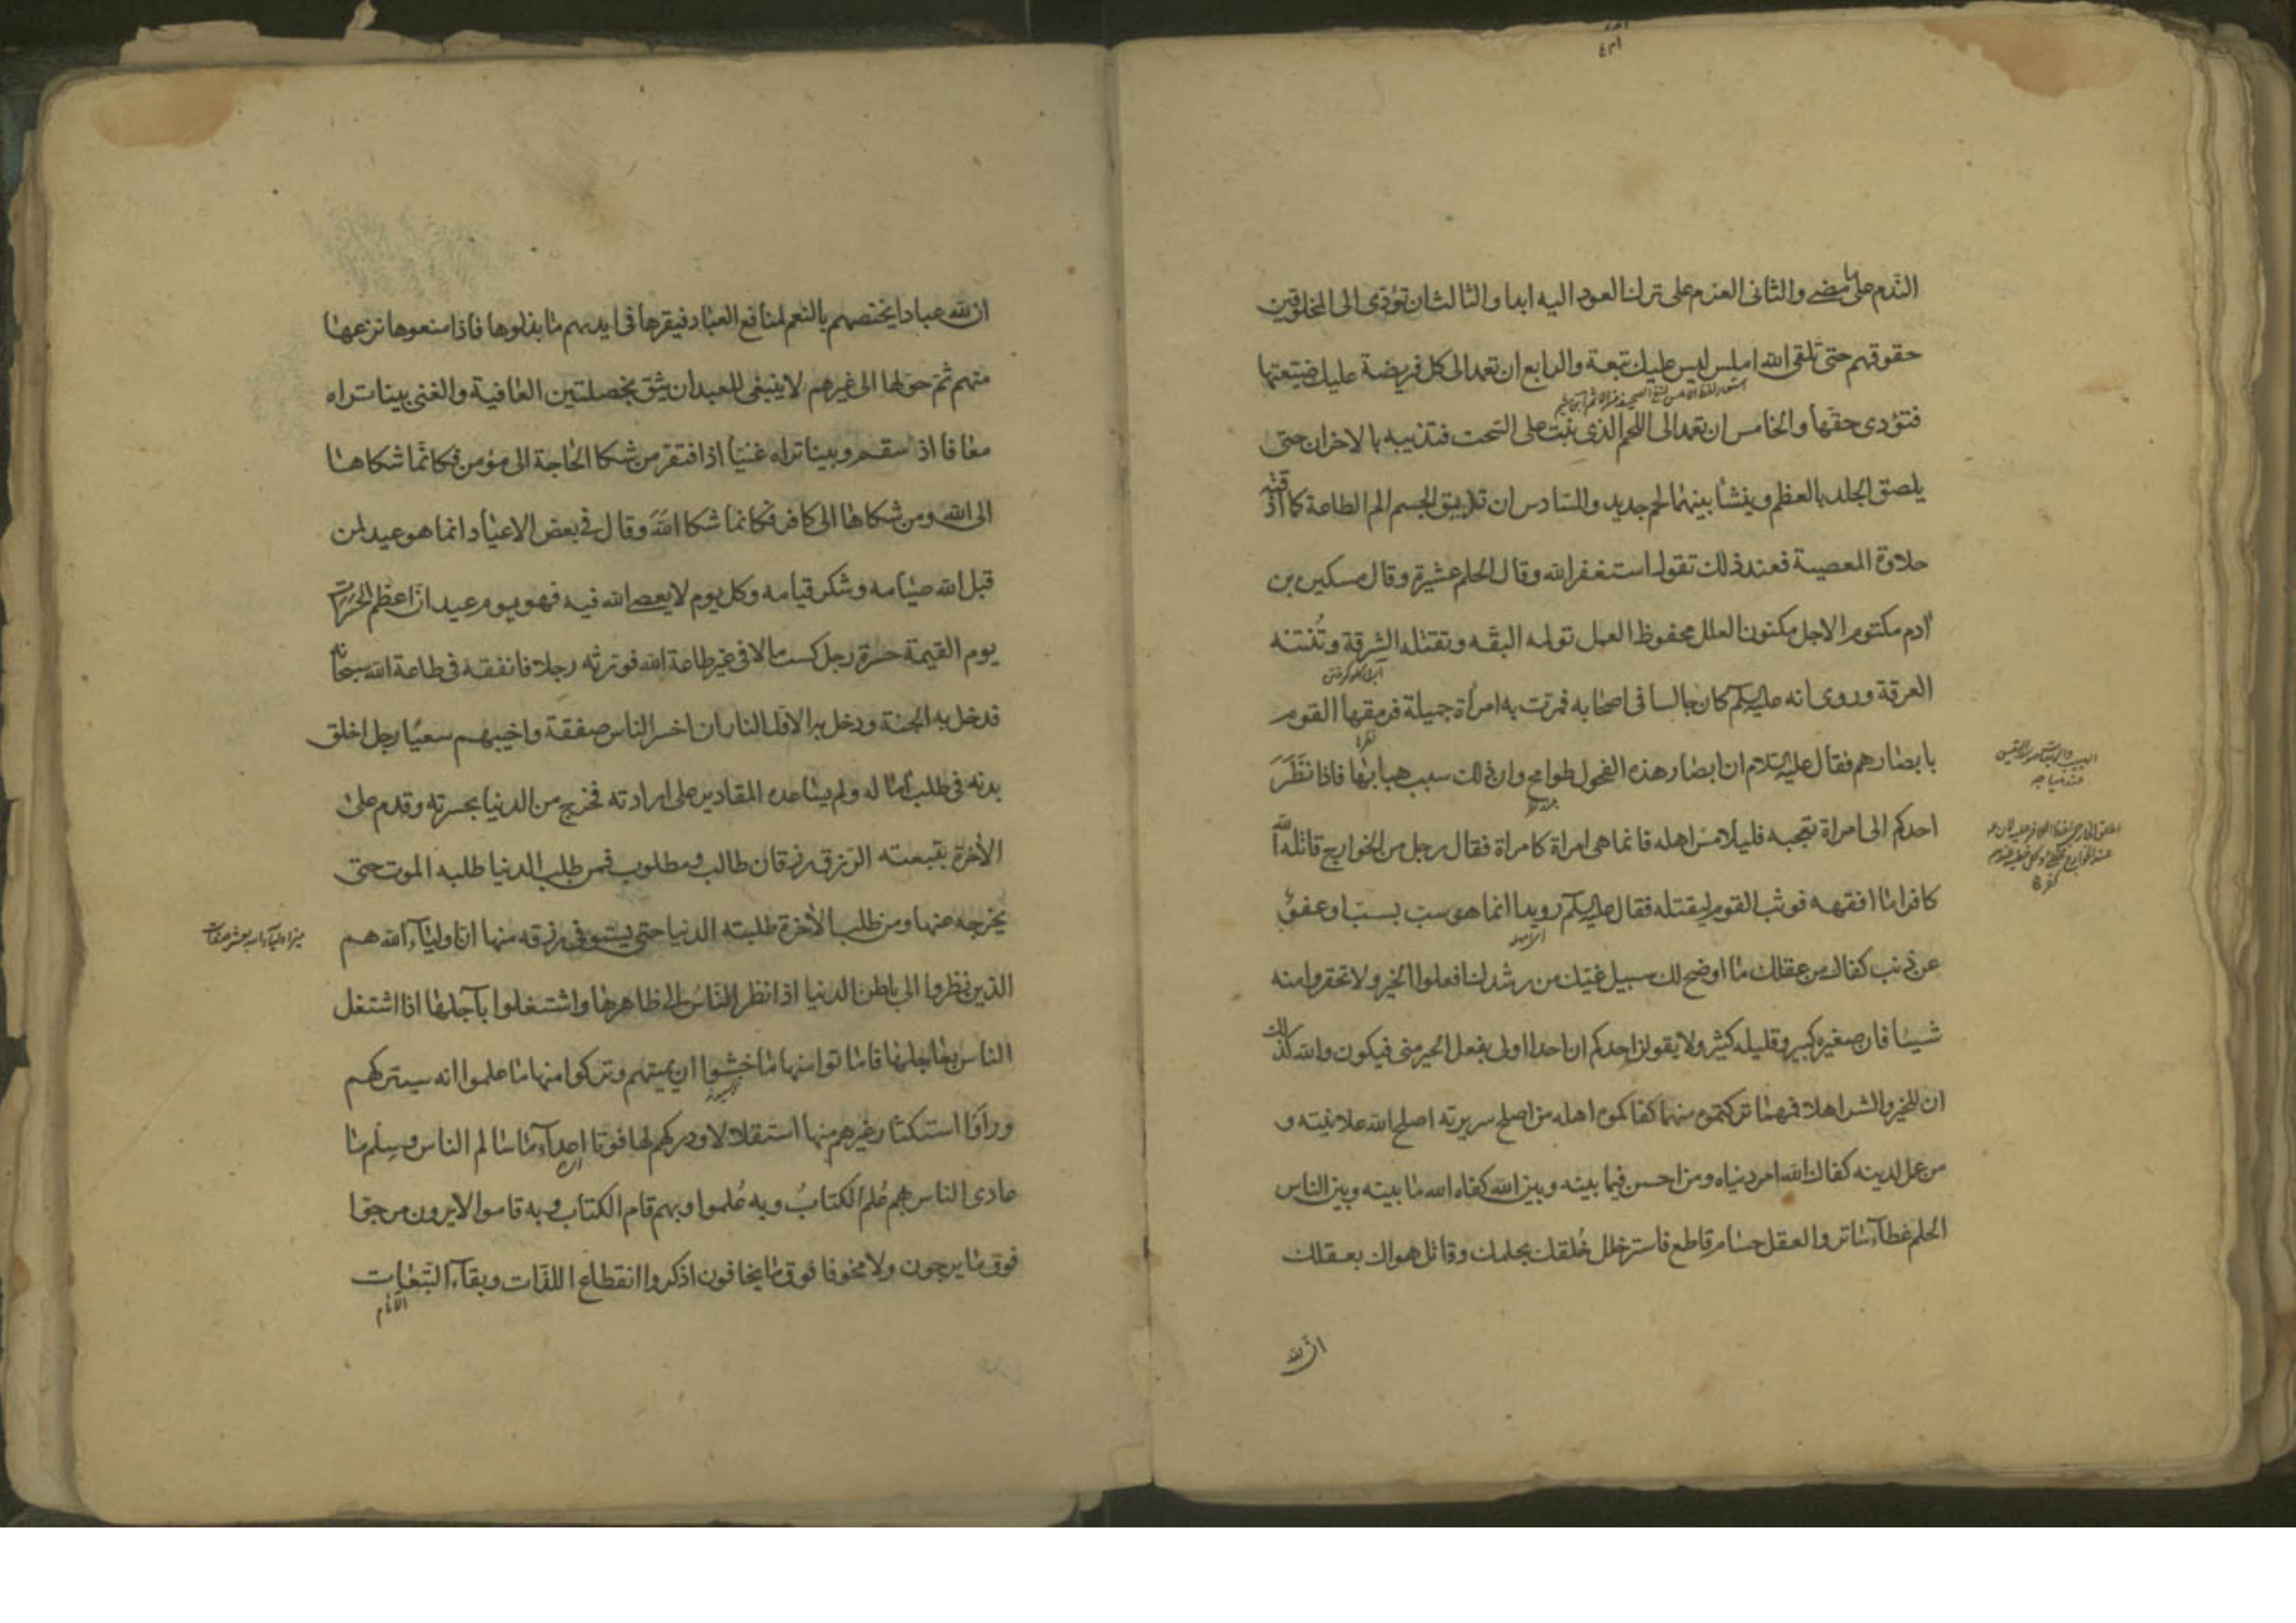 الندم على ما مضى والثانى العزم على ترك العود اليه ابدا والثالث ان تؤدى الى المخلوقين
حقوقهم حتى تلقى الله املس ليس عليك تبعة والرابع ان تعمد الى كل فريضة عليك ضيعتها
فتؤدى حقها والخامس ان تعمد الى اللحم الذى نبت على السحت فتذيبه بالاحزان حتى
يلصق الجلد بالعظم وينشا بينهما لحم جديد والسادس ان تذيق الجسم الم الطاعة كما اذقته
حلاوة المعصية فعند ذلك تقول استغفر الله وقال الحلم عشيرة وقال مسكين بن
ادم مكتوم الاجل مكنون العلل محفوظ العمل تولمه البقه وتقتله الشرقة وتُنتنه
العرقة وروى انه عليه السلام كان جالسا فى اصحابه فمرت به امرأة جميلة فرمقها القوم
بابصارهم فقال عليه السلام ان ابصار هذه الفحول طوامح وان ذلك سبب هبابها فاذا نَظَرَ
احدكم الى امراة تعجبه فليلامس اهله فانما هى امراة كامراة فقال رجل من الخوارج قاتله الله
كافرا ما افقهه فوثب القوم ليقتلوه فقال عليه السلام رويدا انما هو سب بسب او عفو
عن ذنب كفاك من عقلك ما اوضح لك سبيل غيك من رشدك افعلوا الخير ولا تحقروا منه
شيئا فان صغيره كبير وقليله كثير ولا يقولن احدكم ان احدا اولى بفعل الخير منى فيكون والله كذلك
ان للخير والشر اهلا فمهما تركتموه منهما كفاكموه اهله من اصلح سريرته اصلح الله علانيته و
من عمل لدينه كفاه الله امر دنياه ومن احسن فيما بينه وبين الله كفاه الله ما بينه وبين الناس
الحلم غطاء ساتر والعقل حسام قاطع فاستر خلل خُلقك بحلمك وقاتل هواك بعقلك
ان لله
ان لله عبادا يختصهم بالنعم لمنافع العباد فيقرها فى ايديهم ما بذلوها فاذا منعوها نزعها
منهم ثم حولها الى غيرهم لا ينبغى للعبد ان يثق بخصلتين العافية والغنى بينا تراه
معافا اذ سقم وبينا تراه غنيا اذ افتقر من شكا الحاجة الى مؤمن فكانما شكاها
الى الله ومن شكاها الى كافر فكانما شكا الله وقال فى بعض الاعياد انما هو عيد لمن
قبل الله صيامه وشكر قيامه وكل يوم لا يعصى الله فيه فهو يوم عيد ان اعظم الحسرات
يوم القيمة حسرة رجل كسب مالا فى غير طاعة الله فورثه رجلا فانفقه فى طاعة الله سبحانه
فدخل به الجنة ودخل به الاول النار ان اخسر الناس صفقة واخيبهم سعيا رجل اخلق
بدنه فى طلب آماله ولم يساعده المقادير على ارادته فخرج من الدنيا بحسرته وقدم على
الاخرة بتبعته الرزق رزقان طالب ومطلوب فمن طلب الدنيا طلبه الموت حتى
يخرجه عنها ومن طلب الاخرة طلبته الدنيا حتى يستوفى رزقه منها ان اولياء الله هم
الذين نظروا الى باطن الدنيا اذا نظر الناس الى ظاهرها واشتغلوا بآجلها اذا اشتغل
الناس بعاجلها فاماتوا منها ما خشوا ان يميتهم وتركوا منها ما علموا انه سيتركهم
وراوا استكثار غيرهم منها استقلالا ودركهم لها فوتا اعداء ما سالم الناس وسلم ما
عادى الناس بهم عُلم الكتابُ وبه عُلموا وبهم قام الكتاب وبه قاموا لا يرون مرجوا
فوق ما يرجون ولا مخوفا فوق ما يخافون اذكروا انقطاع اللذات وبقاء التبعات